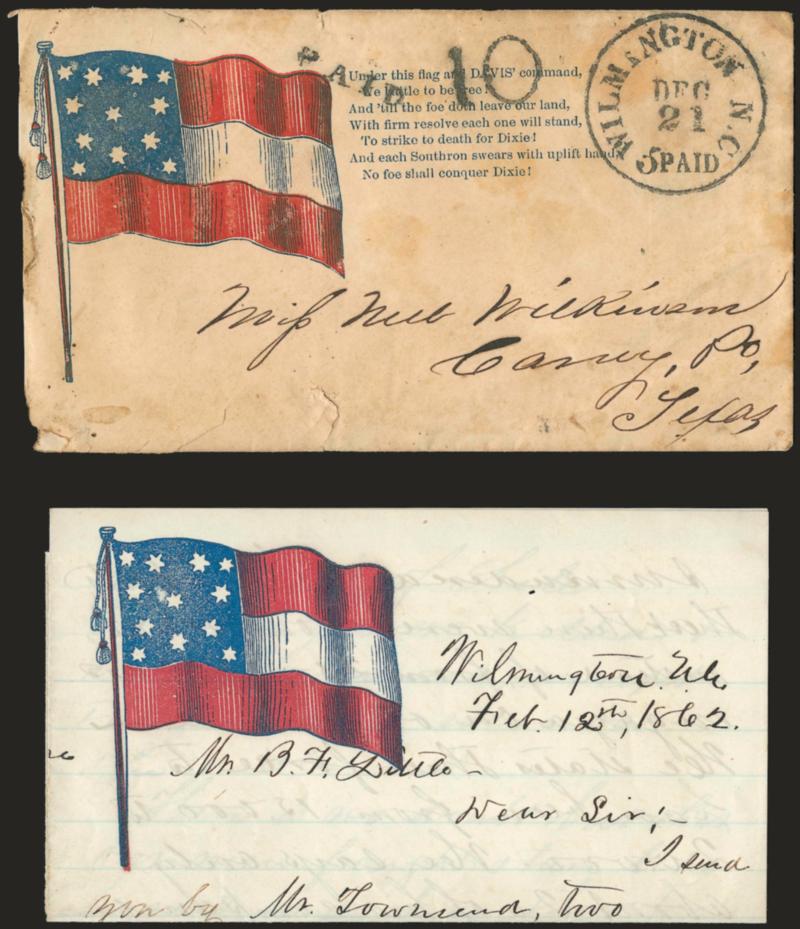 PAID 10
Under this flag and DAVIS' command,
We battle to be free!
And 'till the foe doth leave our land,
With firm resolve each one will stand,
To strike to death for Dixie!
And each Southron swears with uplift hand,
No foe shall conquer Dixie!
WILMINGTON N.C.
DEC
21
5 PAID
Miss Nell Wilkinson
Caney, Po,
Texas
Wilmington N.C.
Feb. 12th, 1862.
Mr. B. F. Little -
Dear Sir; -
I send
you by Mr. Townsend, two